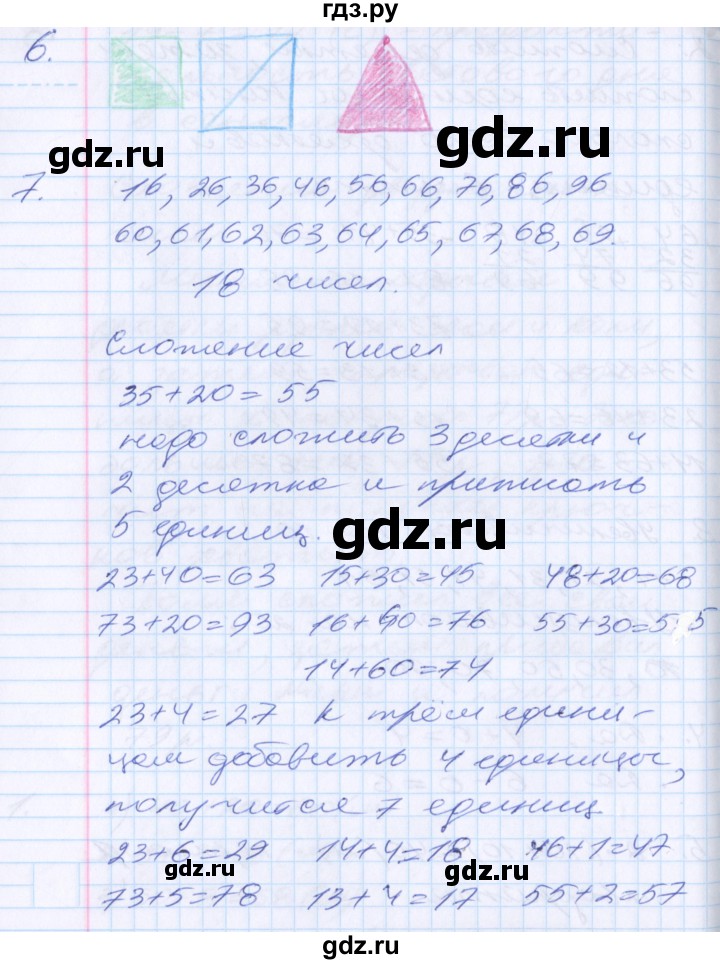 гдз.ру
6.
gdz.ru gdz.ru
7. 16, 26, 36, 46, 56, 66, 76, 86, 96
60, 61, 62, 63, 64, 65, 67, 68, 69.
18 чисел.
Сложение чисел
35+20=55
надо сложить 3 десятки и
2 десятка и приписать
5 единиц.
gdz.ru
23+40=63 15+30=45 48+20=68
73+20=93 16+60=76 55+30=5 5
14+60=74
23+4=27 К трём едини-
цам добавить 4 единицы,
получится 7 единиц
23+6=29 14+4=18 46+1=47
gdz.ru gdz.ru
73+5=78 13+4=17 55+2=57
gdz.ru